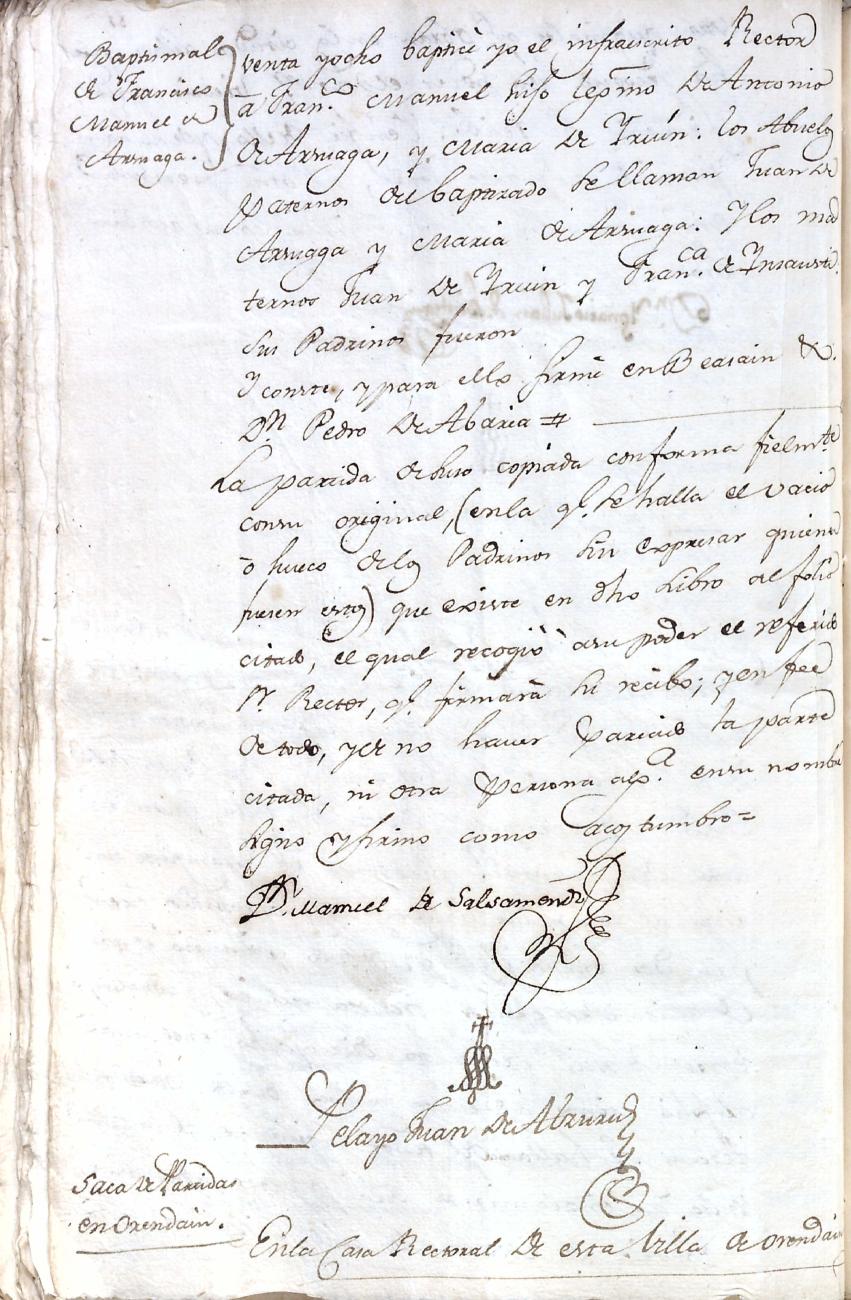 Baptismal
de Francisco
Manuel de
Arruaga.
venta yocho bapticè yo el infraescrito Rector
â Fran.co Manuel hijo lexmo de Antonio
de Arruaga, y Maria de Yrvin: los Abuelos
Paternos del baptizado se llaman Juan de
Arruaga y Maria de Arruaga: Y los ma
ternos Juan de Yrvin y Fran.ca de Ynsausti.
Sus Padrinos fueron
Y conste, y para ello firmè en Beasain &.
Dn. Pedro de Abaria =#
La partida de suso copiada conforma fielmte
con su original, (en la ql. se halla el vacio
ò hueco de los Padrinos sin expresar quienes
fuesen estos) que existe en dho Libro al folio
citado, el qual recogiò à su poder el referido
Sr. Rector, ql. firmarà su recibo; y en fee
de todo, y de no haver parecido la parte
citada, ni otra Persona algª. en su nombre
signo y firmo como acostumbro =
Dn. Manuel de Salsamendi
Pelayo Juan de Alzuru
Saca de Partidas
en Orendain.
En la Casa Rectoral de esta Villa de Orendain